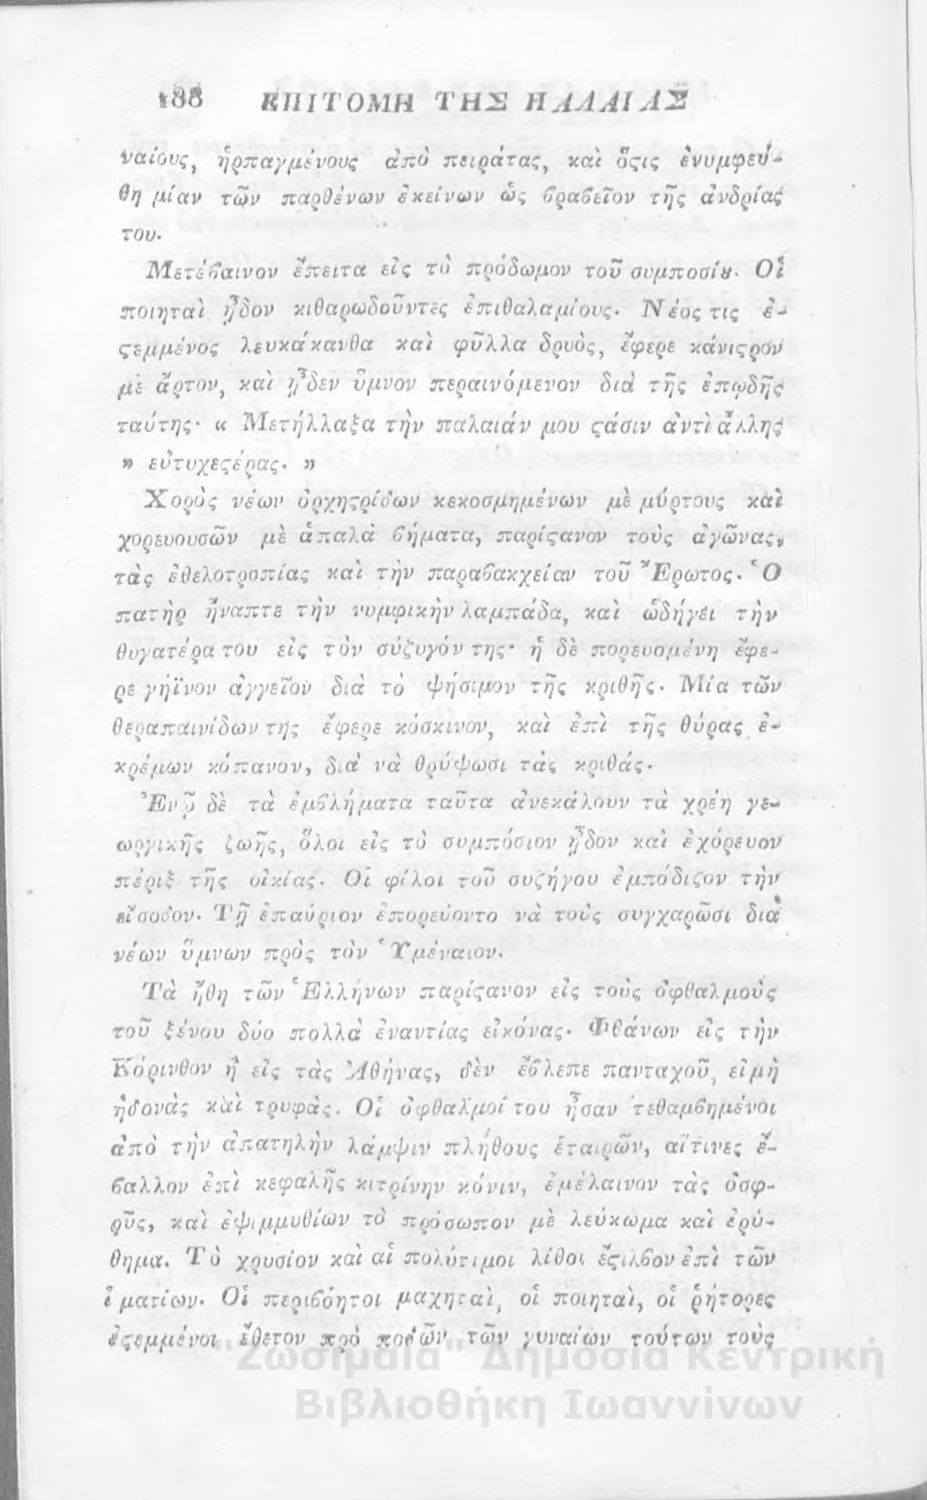 188 ΕΠΙΤΟΜΗ ΤΗΣ ΠΑΛΑΙΑΣ
ναίους, ἡρπαγμένους ἀπὸ πειράτας, καὶ ὅςις ἐνυμφεύ-
θη μίαν τῶν παρθένων ἐκείνων ὡς βραβεῖον τῆς ἀνδρίας
του.
Μετέβαινον ἔπειτα εἰς τὸ πρόδωμον τοῦ συμποσίȣ. Οἱ
ποιηταὶ ᾖδον κιθαρωδοῦντες ἐπιθαλαμίους. Νέος τις ἐ-
ςεμμένος λευκάκανθα καὶ φῦλλα δρυὸς, ἔφερε κάνιςρον
μὲ ἄρτον, καὶ ᾖδεν ὕμνον περαινόμενον διὰ τῆς ἐπῳδῆς
ταύτης· « Μετήλλαξα τὴν παλαιάν μου ςάσιν ἀντὶ ἄλλης
» εὐτυχεςέρας. »
Χορὸς νέων ὀρχηςρίδων κεκοσμημένων μὲ μύρτους καὶ
χορευουσῶν μὲ ἁπαλὰ βήματα, παρίςανον τοὺς ἀγῶνας,
τὰς ἐθελοτροπίας καὶ τὴν παραβακχείαν τοῦ Ἔρωτος. Ὁ
πατὴρ ἥναπτε τὴν νυμφικὴν λαμπάδα, καὶ ὡδήγει τὴν
θυγατέρα του εἰς τὸν σύζυγόν της· ἡ δὲ πορευομένη ἔφε-
ρε γήϊνον ἀγγεῖον διὰ τὸ ψήσιμον τῆς κριθῆς. Μία τῶν
θεραπαινίδων της ἔφερε κόσκινον, καὶ ἐπὶ τῆς θύρας ἐ-
κρέμων κόπανον, διὰ νὰ θρύψωσι τὰς κριθάς.
Ἐνῷ δὲ τὰ ἐμβλήματα ταῦτα ἀνεκάλουν τὰ χρέη γε-
ωργικῆς ζωῆς, ὅλοι εἰς τὸ συμπόσιον ᾖδον καὶ ἐχόρευον
πέριξ τῆς οἰκίας. Οἱ φίλοι τοῦ συζήγου ἐμπόδιζον τὴν
εἴσοδον. Τῇ ἐπαύριον ἐπορεύοντο νὰ τοὺς συγχαρῶσι διὰ
νέων ὕμνων πρὸς τὸν Ὑμέναιον.
Τὰ ἤθη τῶν Ἑλλήνων παρίςανον εἰς τοὺς ὀφθαλμοὺς
τοῦ ξένου δύο πολλὰ ἐναντίας εἰκόνας. Φθάνων εἰς τὴν
Κόρινθον ἢ εἰς τὰς Ἀθήνας, δὲν ἔβλεπε πανταχοῦ, εἰμὴ
ἡδονὰς καὶ τρυφὰς. Οἱ ὀφθαλμοί του ἦσαν τεθαμβημένοι
ἀπὸ τὴν ἀπατηλὴν λάμψιν πλήθους ἑταιρῶν, αἵτινες ἔ-
βαλλον ἐπὶ κεφαλῆς κιτρίνην κόνιν, ἐμέλαινον τὰς ὀσφ-
ρῦς, καὶ ἐψιμμυθίων τὸ πρόσωπον μὲ λεύκωμα καὶ ἐρύ-
θημα. Τὸ χρυσίον καὶ αἱ πολύτιμοι λίθοι ἔςιλβον ἐπὶ τῶν
ἱματίων. Οἱ περιβόητοι μαχηταὶ, οἱ ποιηταὶ, οἱ ῥήτορες
ἐςεμμένοι ἔθετον πρὸ ποδῶν τῶν γυναίων τούτων τοὺς
"Ζωσιμαία" Δημόσια Κεντρική
Βιβλιοθήκη Ιωαννίνων